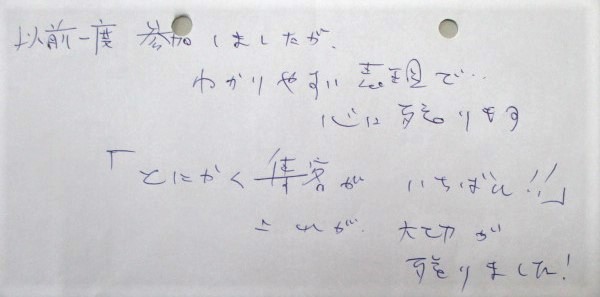 以前一度 参加しましたが、
わかりやすい表現で…
心に残ります
「とにかく集客が いちばん!!」
これが、大切が
残りました!